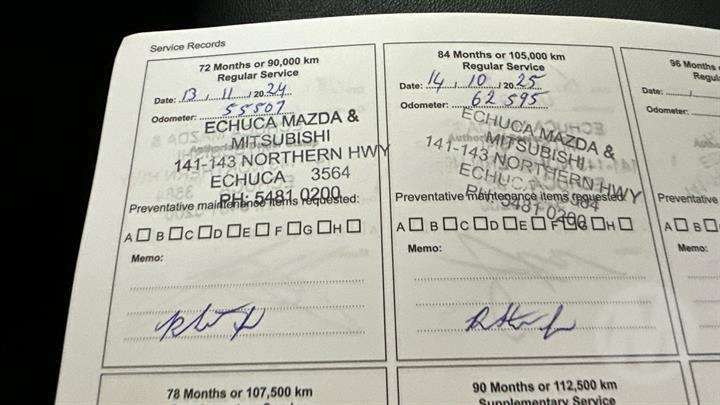 Service Records
72 Months or 90,000 km
Regular Service
Date: 13 / 11 / 20 24
Odometer: 55507
ECHUCA MAZDA &
MITSUBISHI
141-143 NORTHERN HWY
ECHUCA 3564
PH: 5481 0200
Preventative maintenance items requested:
A B C D E F G H
Memo:
84 Months or 105,000 km
Regular Service
Date: 14 / 10 / 20 25
Odometer: 62 595
ECHUCA MAZDA &
MITSUBISHI
141-143 NORTHERN HWY
ECHUCA 3564
PH: 5481 0200
Preventative maintenance items requested:
A B C D E F G H
Memo:
96 Months
Date:
Odometer:
Preventative
A B
Memo:
78 Months or 107,500 km
90 Months or 112,500 km
Supplementary Service